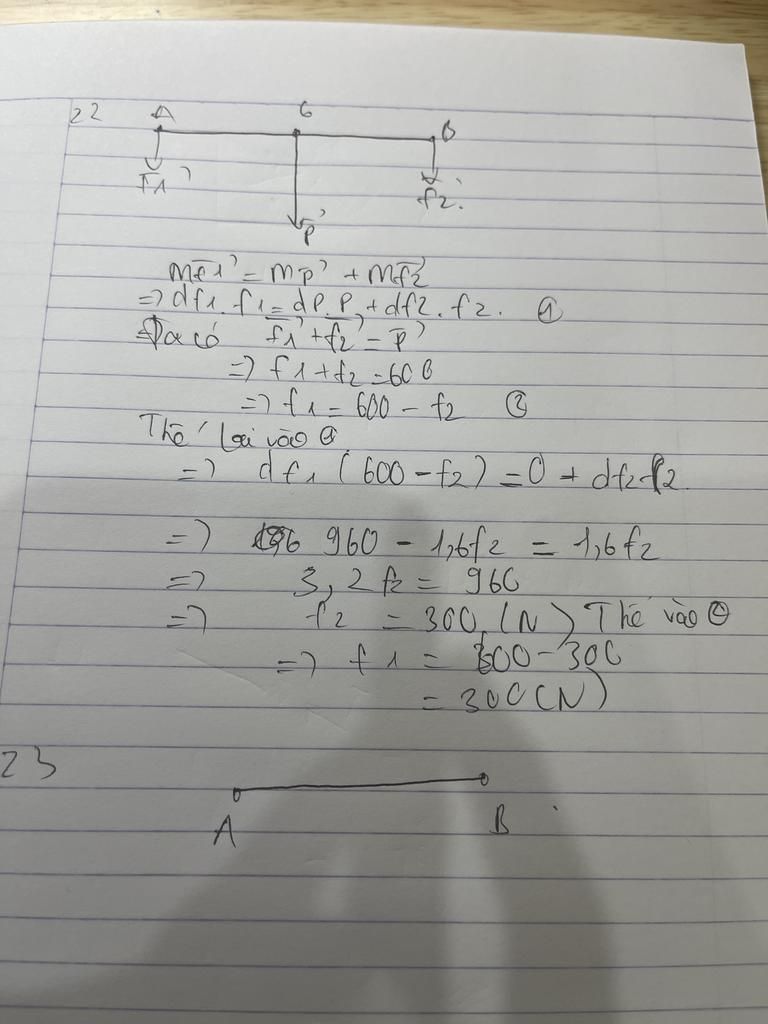 22 A G B
F1 P f2
Mf1 = Mp + Mf2
=> df1 . f1 = dP . P + df2 . f2 . ①
Ta có f1 + f2 = P
=> f1 + f2 = 600
=> f1 = 600 - f2 ②
Thế lại vào ①
=> df1 (600 - f2) = 0 + df2 . f2
=> 960 - 1,6f2 = 1,6f2
=> 3,2f2 = 960
=> f2 = 300 (N) Thế vào ②
=> f1 = 600 - 300
= 300 (N)
23
A B